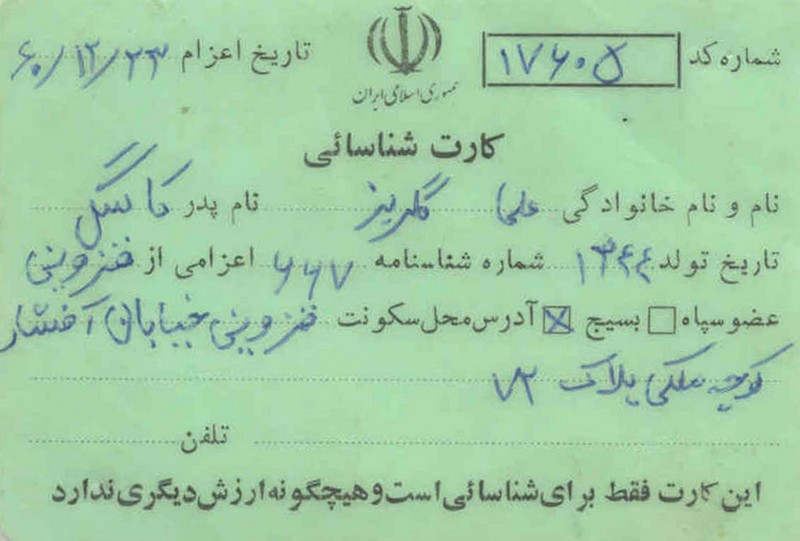 شماره کد ۱۷۶۰۵ تاریخ اعزام ۶۰/۱۲/۲۳
جمهوری اسلامی ایران
کارت شناسائی
نام و نام خانوادگی علی گلریز نام پدر
تاریخ تولد ۱۳۴۴ شماره شناسنامه ۶۶۷ اعزامی از قزوین
عضو سپاه □ بسیج ☒ آدرس محل سکونت قزوین خیابان افشار
کوچه ملکی پلاک ۷۲
تلفن
این کارت فقط برای شناسائی است و هیچگونه ارزش دیگری ندارد